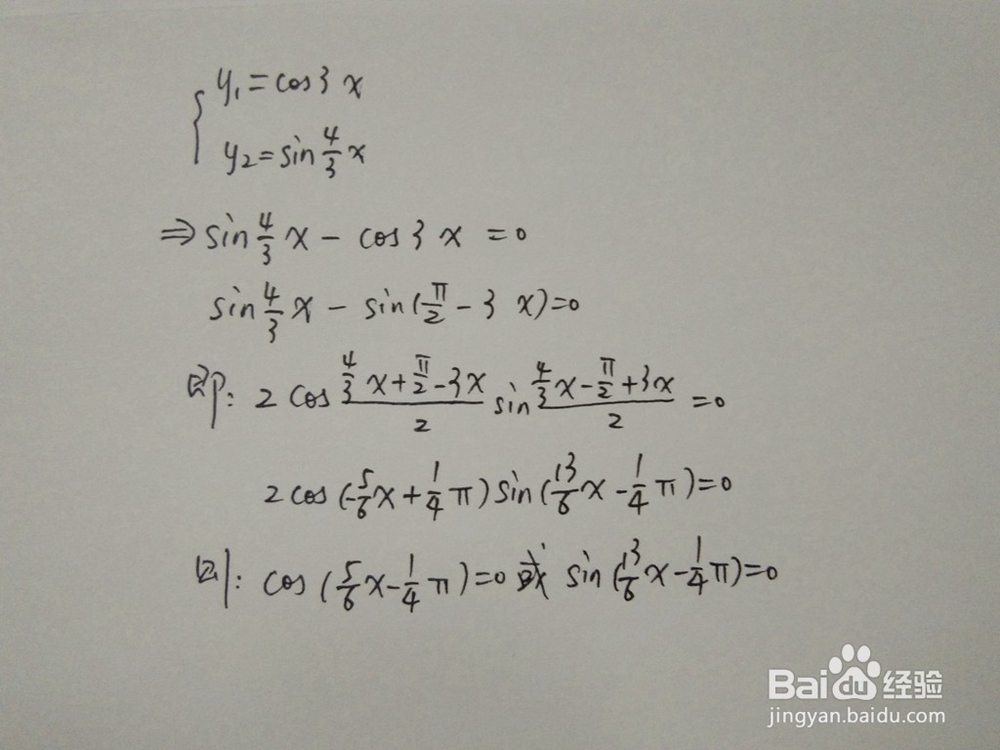 y₁=cos3x
y₂=sin4/3x
⇒sin4/3x-cos3x=0
sin4/3x-sin(π/2-3x)=0
即: 2cos(4/3x+π/2-3x)/2sin(4/3x-π/2+3x)/2=0
2cos(-5/6x+1/4π)sin(13/6x-1/4π)=0
则: cos(5/6x-1/4π)=0或sin(13/6x-1/4π)=0
Baidu经验
jingyan.baidu.com